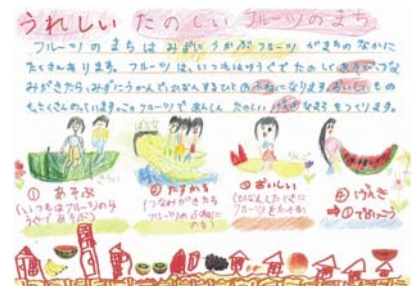 うれしい たのしい フルーツのまち
フルーツの まちは みずに うかぶ フルーツ が まちの なかに
たくさん あります。フルーツは、いつもは ゆうぐで たのしく あそび つな
みが きたら、みずに うかんで ひなんするひとの ふねに なります。おいしい もの
も たくさん のっています。この フルーツで あんしん たのしい げんきなまちを つくります。
① あそぶ
(いつもは フルーツの
ゆうぐで あそぶ)
ばなな
② たすかる
(つなみが きたら
フルーツの ふねに
のる)
りんご
③ おいしい
(ひなんしたときに
フルーツを たべる)
④ げんき